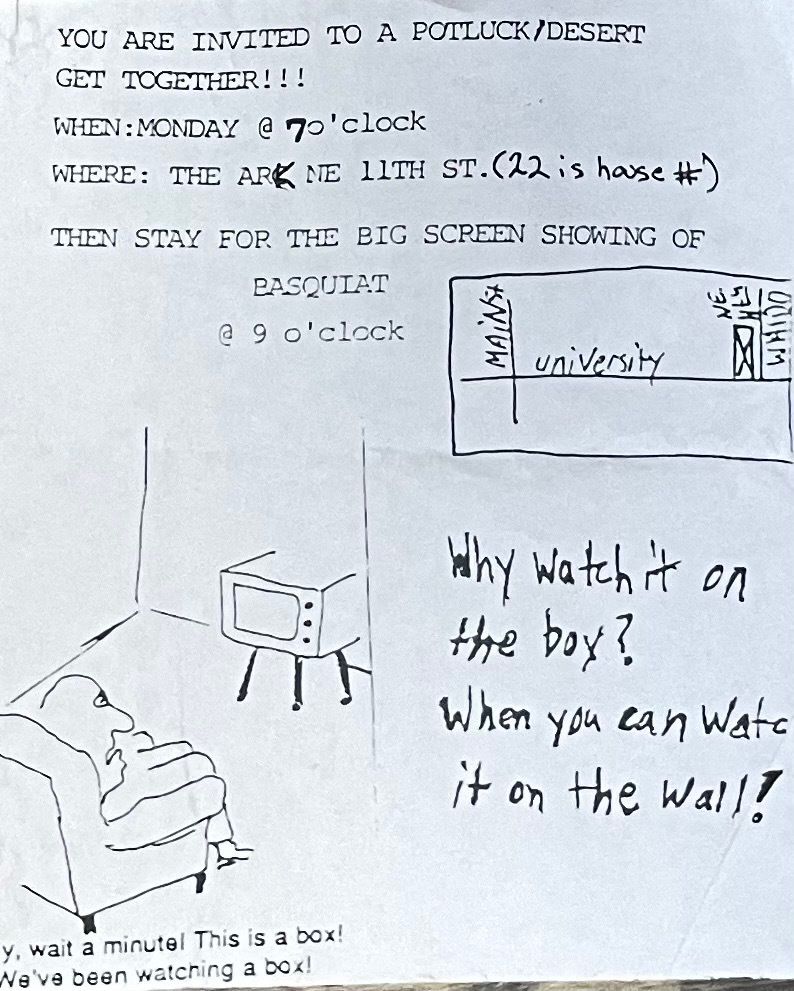 YOU ARE INVITED TO A POTLUCK/DESERT
GET TOGETHER!!!
WHEN:MONDAY @ 7o'clock
WHERE: THE ARK NE 11TH ST.(22 is house #)
THEN STAY FOR THE BIG SCREEN SHOWING OF
BASQUIAT
@ 9 o'clock
MAIN St
university
NE
Why watch it on
the box?
When you can watc
it on the wall!
y, wait a minute! This is a box!
We've been watching a box!